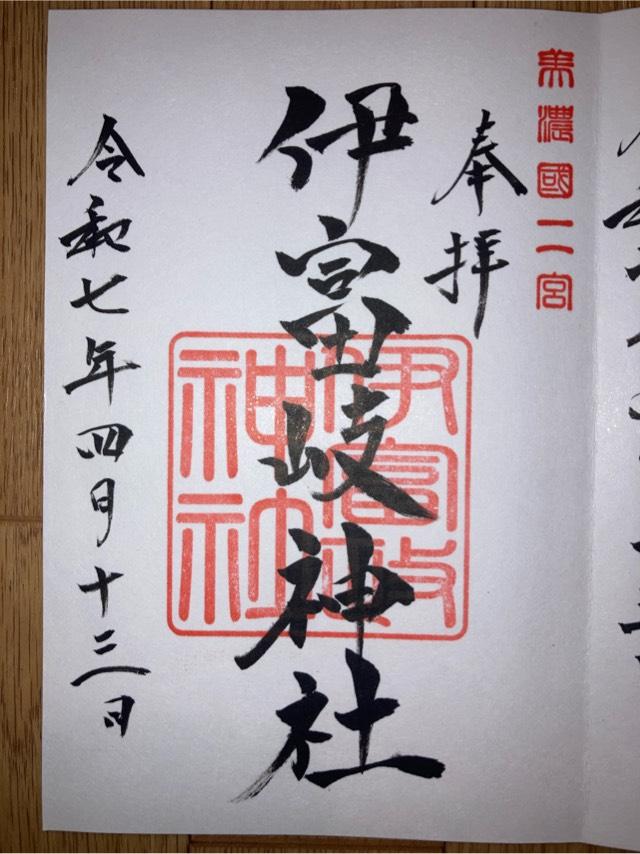 美濃國二宮
奉拝
伊富岐神社
伊富岐神社
令和七年四月十三日